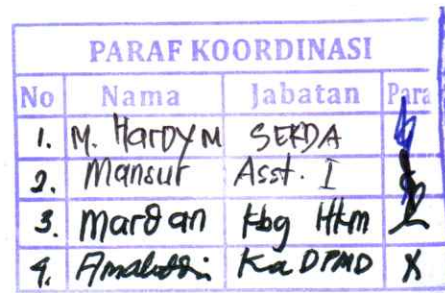 PARAF KOORDINASI
No Nama Jabatan Para
1. M. Hardy M SEKDA
2. Mansur Asst. I
3. Mardan Kbg Hkm
4. Amaluddin Ka DPMD